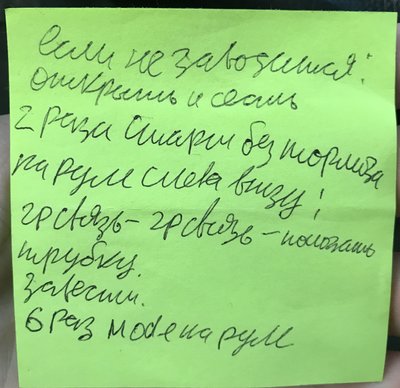 если не заводится:
открыть и сесть
2 раза старт без тормоза
на руле слева внизу:
гр связь - гр связь - показать
трубку.
завести.
6 раз mode на руле